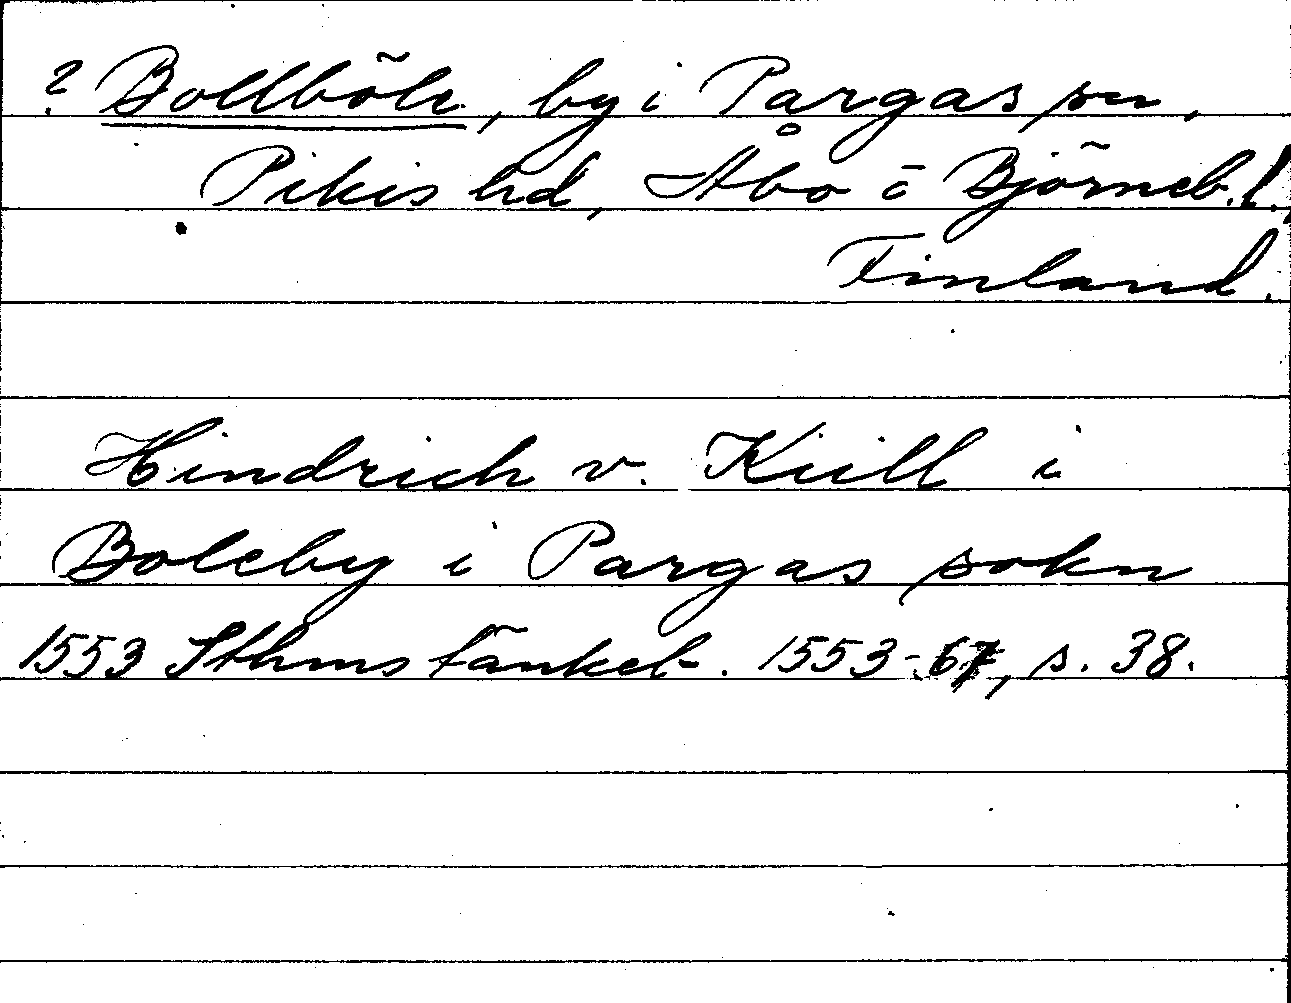 ? Bollböle, by i Pargas sn,
Pikis hd, Åbo o Björneb. l.,
Finland.
Hindrich v. Kiill i
Boleby i Pargas sokn
1553 Sthms tänkeb. 1553-67, s. 38.